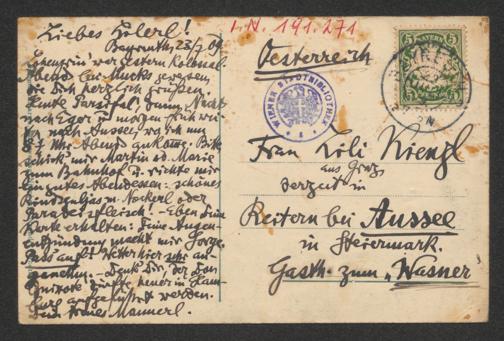 I.N. 191.271
Liebes Lolerl!
Bayreuth, 23/7 09.
Lohengrin vorgestern kolossal.
Abend bei Mucks gewesen,
die Dich herzlich grüßen.
Heute Parsifal. Dann Nacht
nach Eger u. morgen früh wei-
ter nach Aussee, wo ich um
8h Abends ankomme. Bitte
schick' mir Martin od. Marie
zum Bahnhof u. richte mir
ein gutes Abendessen: schönes
Rindsgulyas m. Nockerl oder
Paradeisfleisch! – Eben Deine
Karte erhalten: Deine Augen-
entzündung macht mir Sorge.
Pass auf! Wetter hier sehr an-
genehm. – Denk' Dir, der Don
Quixote dürfte heuer in Ham-
burg aufgeführt werden.
Dein treues Mannerl.
Oesterreich
BAYERN
5
5
WIENER STADTBIBLIOTHEK
Frau Lili Kienzl
aus Graz
derzeit in
Reitern bei Aussee
in Steiermark.
Gasth. zum "Wasner"